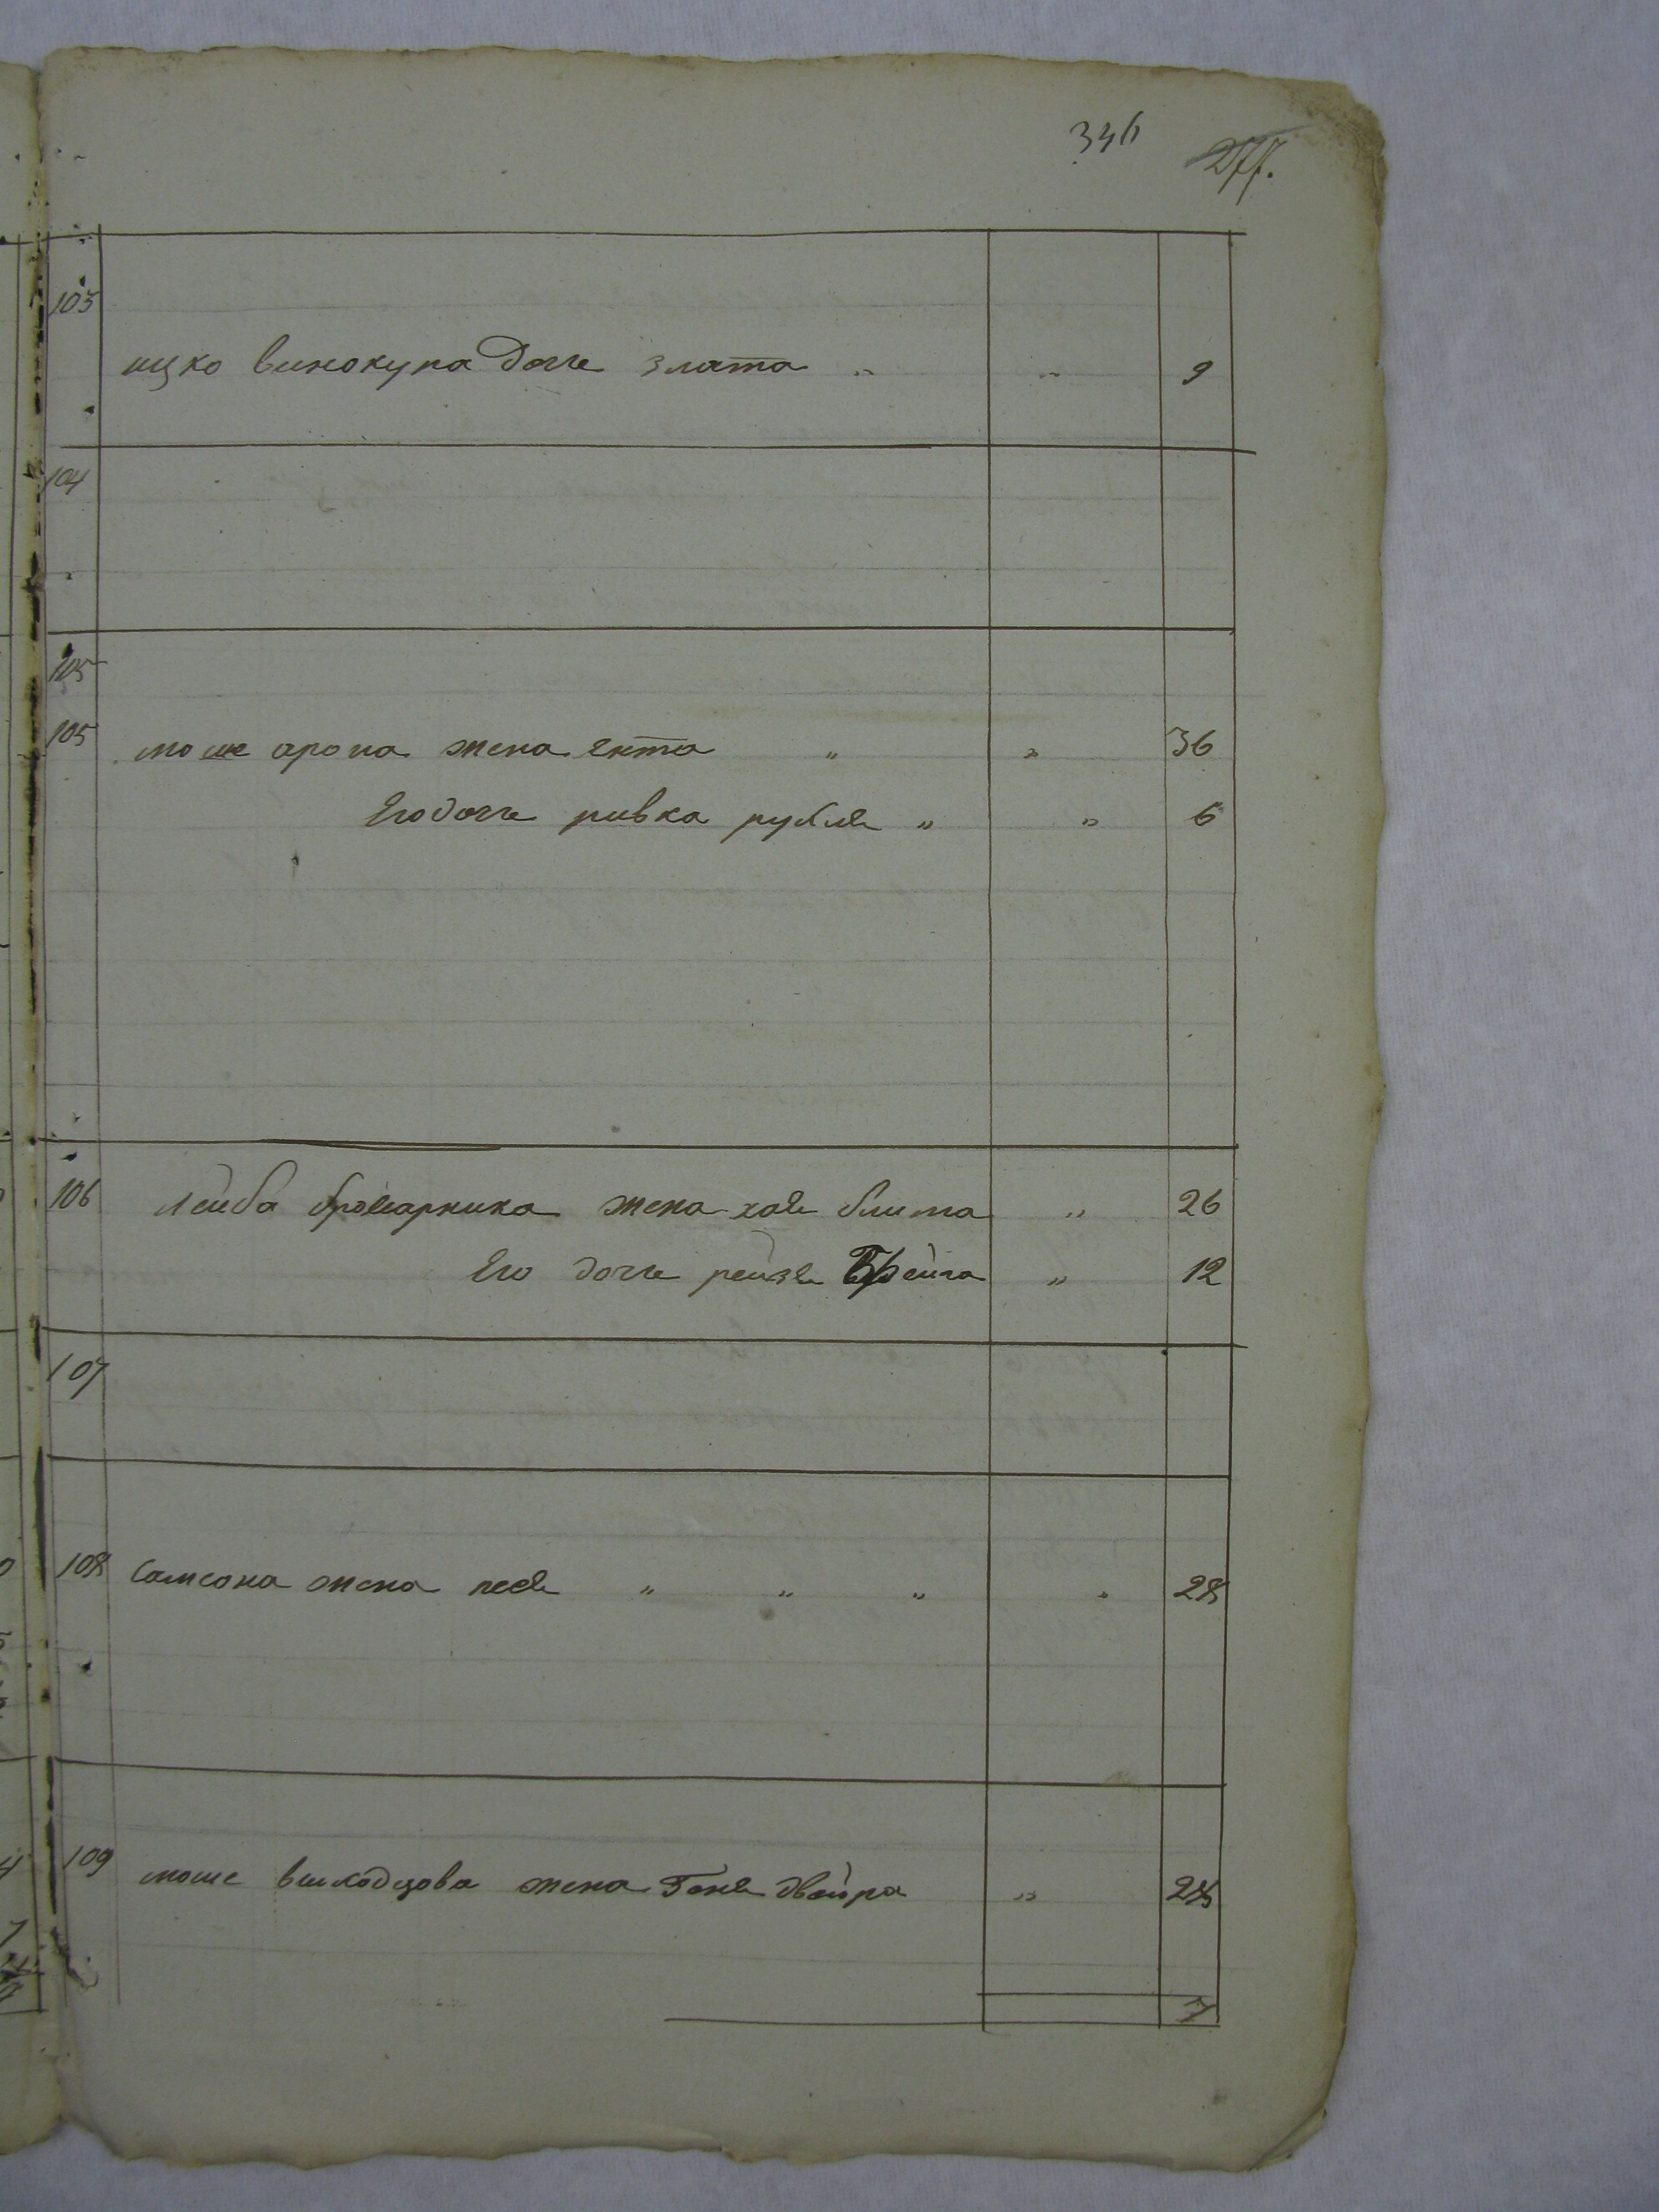 346 277.
103
ицко винокура дочь злата " " 9
104
105
105 моше арона жена ента " " 36
Его дочь ривка рухля " " 6
106 лейба броварника жена хая блима " 26
Его дочь рейзя Брейна " 12
107
108 Самсона жена песя " " " " 28
109 моше виходцова жена Геня двойра " 28
7